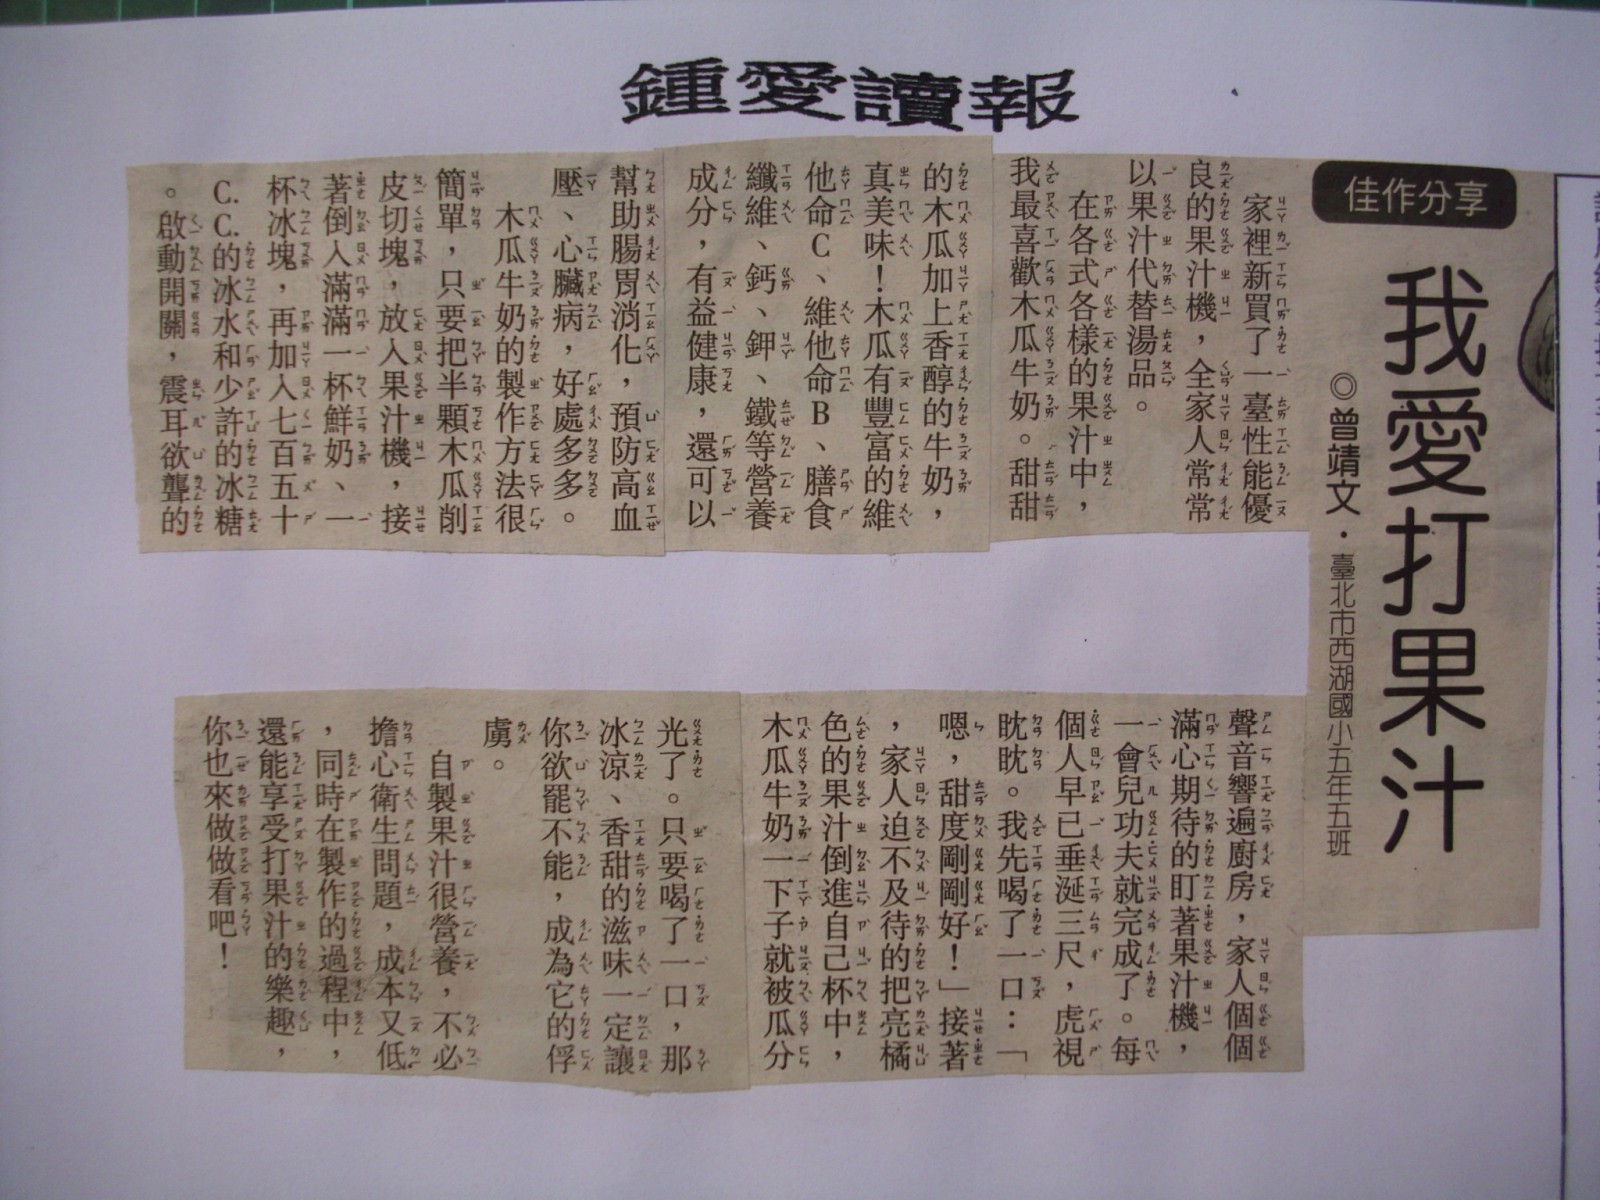 鍾愛讀報
佳作分享
我愛打果汁
◎曾靖文・臺北市西湖國小五年五班
家裡新買了一臺性能優
良的果汁機，全家人常常
以果汁代替湯品。
在各式各樣的果汁中，
我最喜歡木瓜牛奶。甜甜
的木瓜加上香醇的牛奶，
真美味！木瓜有豐富的維
他命C、維他命B、膳食
纖維、鈣、鉀、鐵等營養
成分，有益健康，還可以
幫助腸胃消化，預防高血
壓、心臟病，好處多多。
木瓜牛奶的製作方法很
簡單，只要把半顆木瓜削
皮切塊，放入果汁機，接
著倒入滿滿一杯鮮奶、一
杯冰塊，再加入七百五十
C.C.的冰水和少許的冰糖
。啟動開關，震耳欲聾的
聲音響遍廚房，家人個個
滿心期待的盯著果汁機，
一會兒功夫就完成了。每
個人早已垂涎三尺，虎視
眈眈。我先喝了一口：「
嗯，甜度剛剛好！」接著
，家人迫不及待的把亮橘
色的果汁倒進自己杯中，
木瓜牛奶一下子就被瓜分
光了。只要喝了一口，那
冰涼、香甜的滋味一定讓
你欲罷不能，成為它的俘
虜。
自製果汁很營養，不必
擔心衛生問題，成本又低
，同時在製作的過程中，
還能享受打果汁的樂趣，
你也來做做看吧！